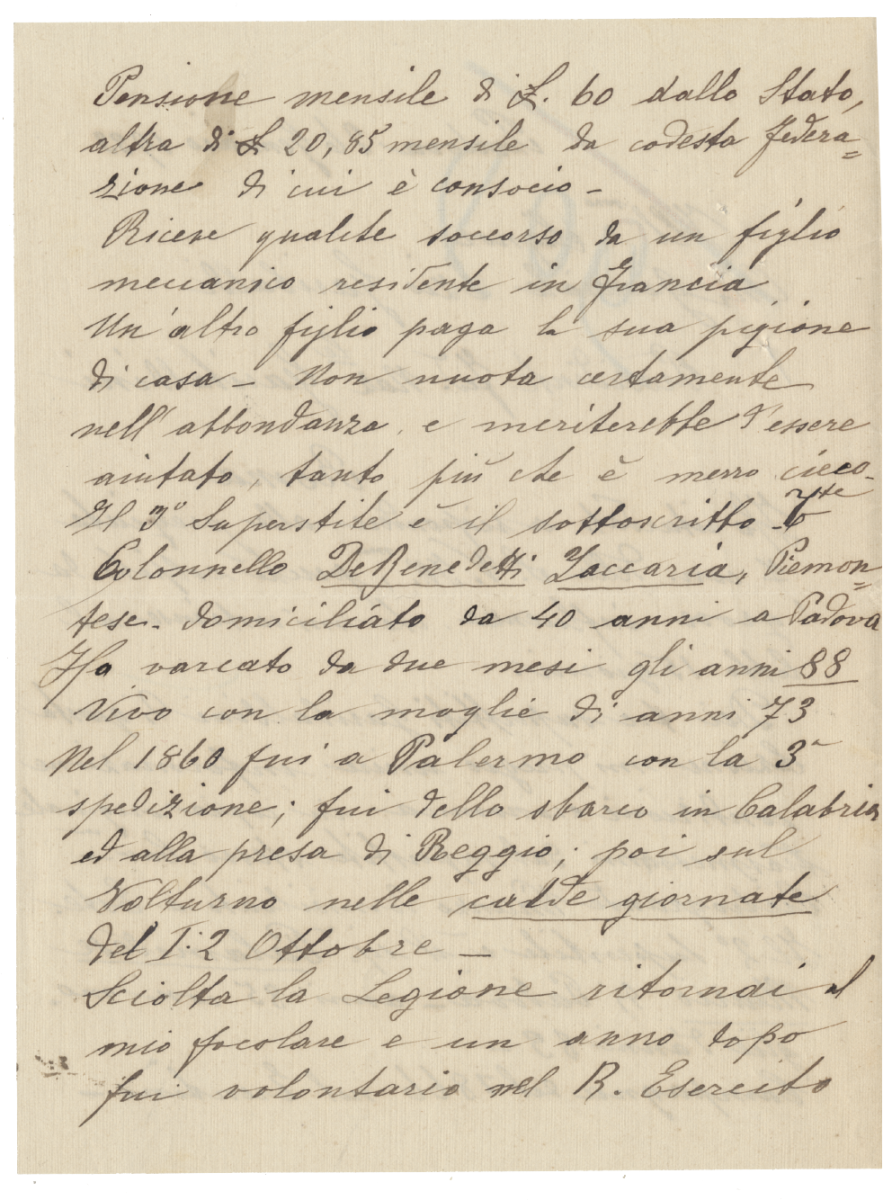 Pensione mensile di £. 60 dallo Stato,
altra di £ 20,85 mensile da codesta Federa=
zione di cui è consocio -
Riceve qualche soccorso da un figlio
meccanico residente in Francia
Un'altro figlio paga la sua pigione
di casa - Non nuota certamente
nell'abbondanza, e meriterebbe d'essere
aiutato, tanto più che è mezzo cieco.
Il 3º Superstite è il sottoscritto Tte
Colonnello DeBenedetti Zaccaria, Piemon=
tese - domiciliato da 40 anni a Padova
Ha varcato da due mesi gli anni 88
Vivo con la moglie di anni 73
Nel 1860 fui a Palermo con la 3ª
spedizione; fui dello sbarco in Calabria
ed alla presa di Reggio; poi sul
Volturno nelle calde giornate
del 1. 2 Ottobre -
Sciolta la Legione ritornai al
mio focolare e un anno dopo
fui volontario nel R. Esercito